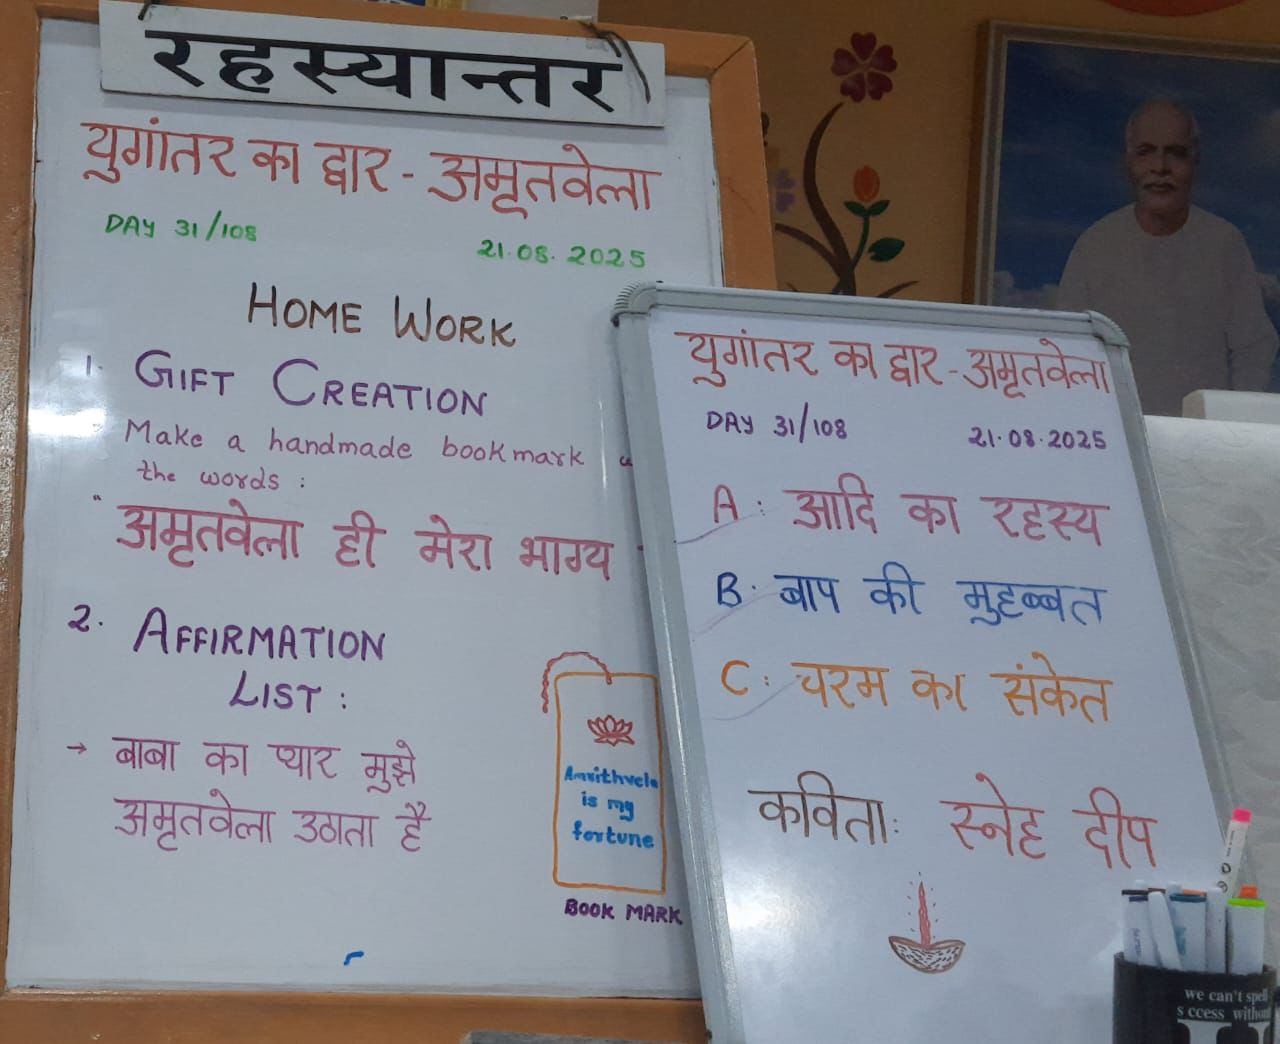 रहस्यान्तर
युगांतर का द्वार - अमृतवेला
DAY 31/108
21.08.2025
HOME WORK
1. GIFT CREATION
Make a handmade bookmark
the words :
" अमृतवेला ही मेरा भाग्य
2. AFFIRMATION
LIST :
→ बाबा का प्यार मुझे
अमृतवेला उठाता है
Amrithvela
is my
fortune
BOOK MARK
युगांतर का द्वार - अमृतवेला
DAY 31/108
21.08.2025
A : आदि का रहस्य
B. बाप की मुहब्बत
C : चरम का संकेत
कविता: स्नेह दीप
we can't spell
s ccess without